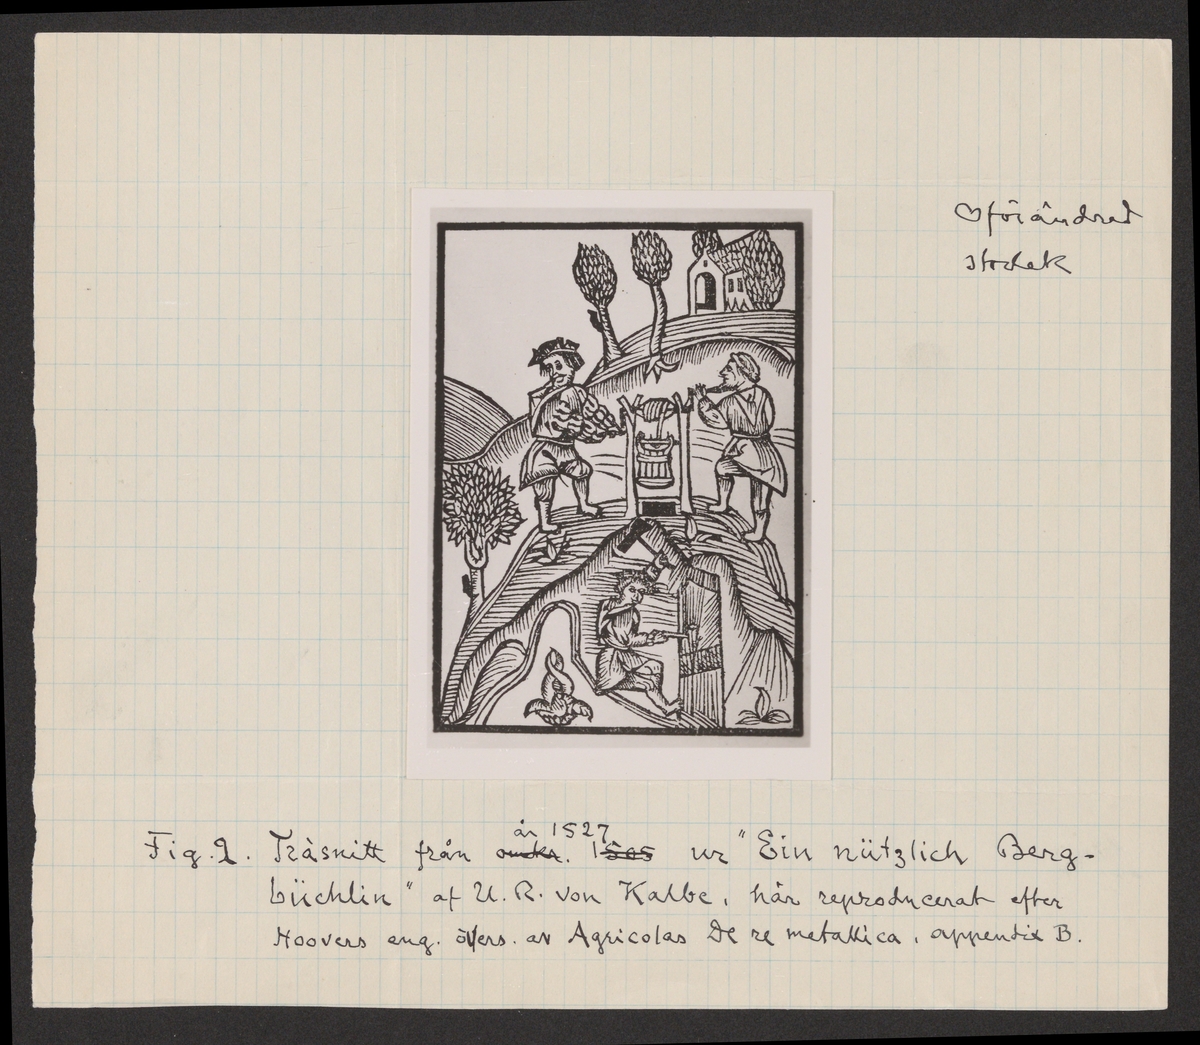 Oförändrad
storlek
år 1527
Fig. 2. Träsnitt från omkr. 1505 ur "Ein nützlich Berg-
büchlin" af U. R. von Kalbe, här reproducerat efter
Hoovers eng. övers. av Agricolas De re metallica, appendix B.